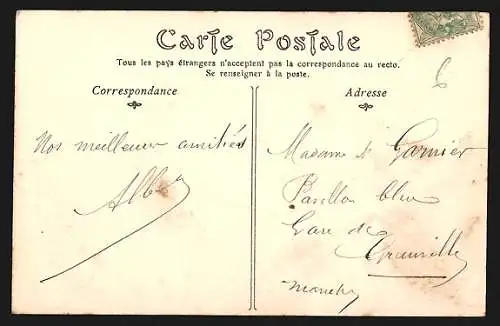 Carte Postale
Tous les pays étrangers n'acceptent pas la correspondance au recto.
Se renseigner à la poste.
Correspondance
Adresse
Nos meilleur amitiés
Madame
Garnier
Pavillon bleu
Gare de
Granville
Manche